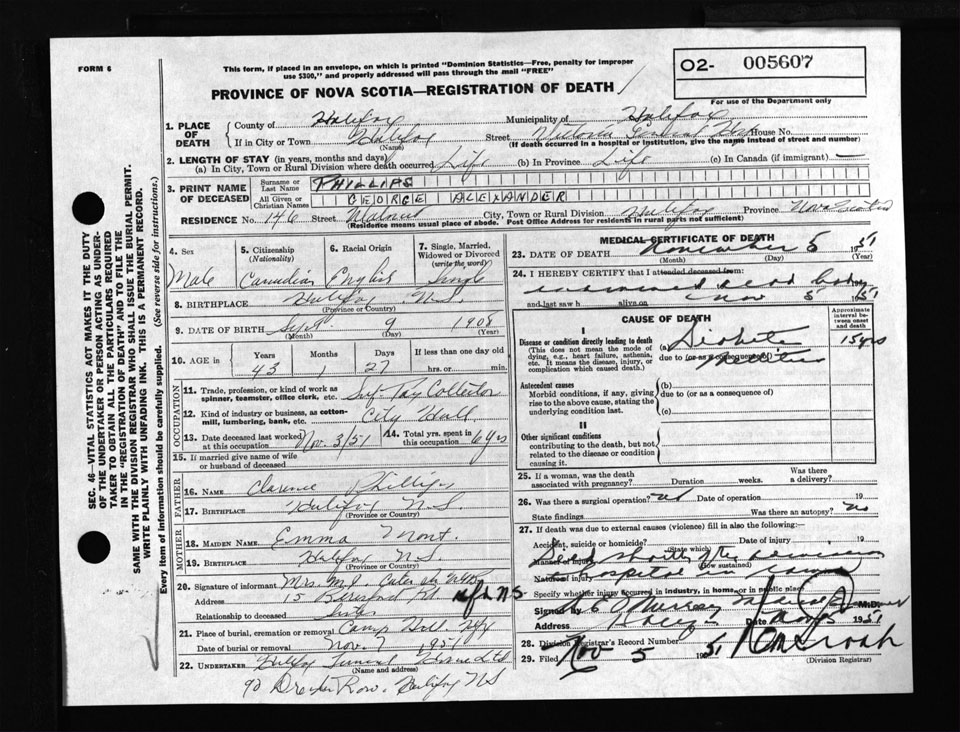 FORM 6
This form, if placed in an envelope, on which is printed "Dominion Statistics—Free, penalty for improper
use $300," and properly addressed will pass through the mail "FREE"
O2- 005607
For use of the Department only
PROVINCE OF NOVA SCOTIA—REGISTRATION OF DEATH
1. PLACE OF DEATH
County of Halifax Municipality of Halifax
If in City or Town Halifax Street Victoria General Hosp House No.
(Name) (If death occurred in a hospital or institution, give the name instead of street and number)
2. LENGTH OF STAY (in years, months and days)
(a) In City, Town or Rural Division where death occurred Life (b) In Province Life (c) In Canada (if immigrant) —
3. PRINT NAME OF DECEASED
Surname or Last Name PHILLIPS
All Given or Christian Names GEORGE ALEXANDER
RESIDENCE No. 146 Street Walnut City, Town or Rural Division Halifax Province Nova Scotia
(Residence means usual place of abode. Post Office Address for residents in rural parts not sufficient)
4. Sex Male
5. Citizenship (Nationality) Canadian
6. Racial Origin English
7. Single, Married, Widowed or Divorced (write the word) Single
8. BIRTHPLACE Halifax N.S.
(Province or Country)
9. DATE OF BIRTH Sept 9 1908
(Month) (Day) (Year)
10. AGE in Years Months Days If less than one day old
43 1 27 hrs. or min.
OCCUPATION
11. Trade, profession, or kind of work as
spinner, teamster, office clerk, etc. Tax Collector
12. Kind of industry or business, as cotton-
mill, lumbering, bank, etc. City Hall
13. Date deceased last worked at this occupation Nov. 3/51
14. Total yrs. spent in this occupation 6 yrs
15. If married give name of wife
or husband of deceased
FATHER
16. NAME Clarence Phillips
17. BIRTHPLACE Halifax N.S.
(Province or Country)
MOTHER
18. MAIDEN NAME Emma
19. BIRTHPLACE Halifax N.S.
(Province or Country)
20. Signature of informant Mrs. M.J.
Address 15 Rd. Hfx N.S.
Relationship to deceased Sister
21. Place of burial, cremation or removal Camp Hill Hfx
Date of burial or removal Nov. 7 1951
22. UNDERTAKER Halifax Funeral Home Ltd
(Name and address)
90 Row. Halifax NS
MEDICAL CERTIFICATE OF DEATH
23. DATE OF DEATH November 5 1951
(Month) (Day) (Year)
24. I HEREBY CERTIFY that I attended deceased from:
examined dead body
and last saw h alive on Nov 5 1951
CAUSE OF DEATH
Approximate interval between onset and death
I
Disease or condition directly leading to death
(This does not mean the mode of
dying, e.g., heart failure, asthenia,
etc. It means the disease, injury, or
complication which caused death.)
(a) Diabetes 15 yrs
due to (or as a consequence of)
Mellitus
Antecedent causes
Morbid conditions, if any, giving
rise to the above cause, stating the
underlying condition last.
(b)
due to (or as a consequence of)
(c)
II
Other significant conditions
contributing to the death, but not
related to the disease or condition
causing it.
25. If a woman, was the death associated with pregnancy? Duration weeks. Was there a delivery?
26. Was there a surgical operation? no Date of operation 19
State findings Was there an autopsy? no
27. If death was due to external causes (violence) fill in also the following:—
Accident, suicide or homicide? Date of injury 19
(State which)
Manner of injury (How sustained)
Died shortly after admission
Nature of injury
hospital in coma
Specify whether injury occurred in industry, in home, or in public place
Signed by Murray M.D.
Address Halifax Date Nov 5 1951
28. Division Registrar's Record Number
29. Filed Nov 5 1951
(Division Registrar)
SEC. 46—VITAL STATISTICS ACT MAKES IT THE DUTY
OF THE UNDERTAKER OR PERSON ACTING AS UNDER-
TAKER TO OBTAIN ALL THE PARTICULARS REQUIRED
IN THE "REGISTRATION OF DEATH" AND TO FILE THE
SAME WITH THE DIVISION REGISTRAR WHO SHALL ISSUE THE BURIAL PERMIT.
WRITE PLAINLY WITH UNFADING INK. THIS IS A PERMANENT RECORD.
Every item of information should be carefully supplied. (See reverse side for instructions.)